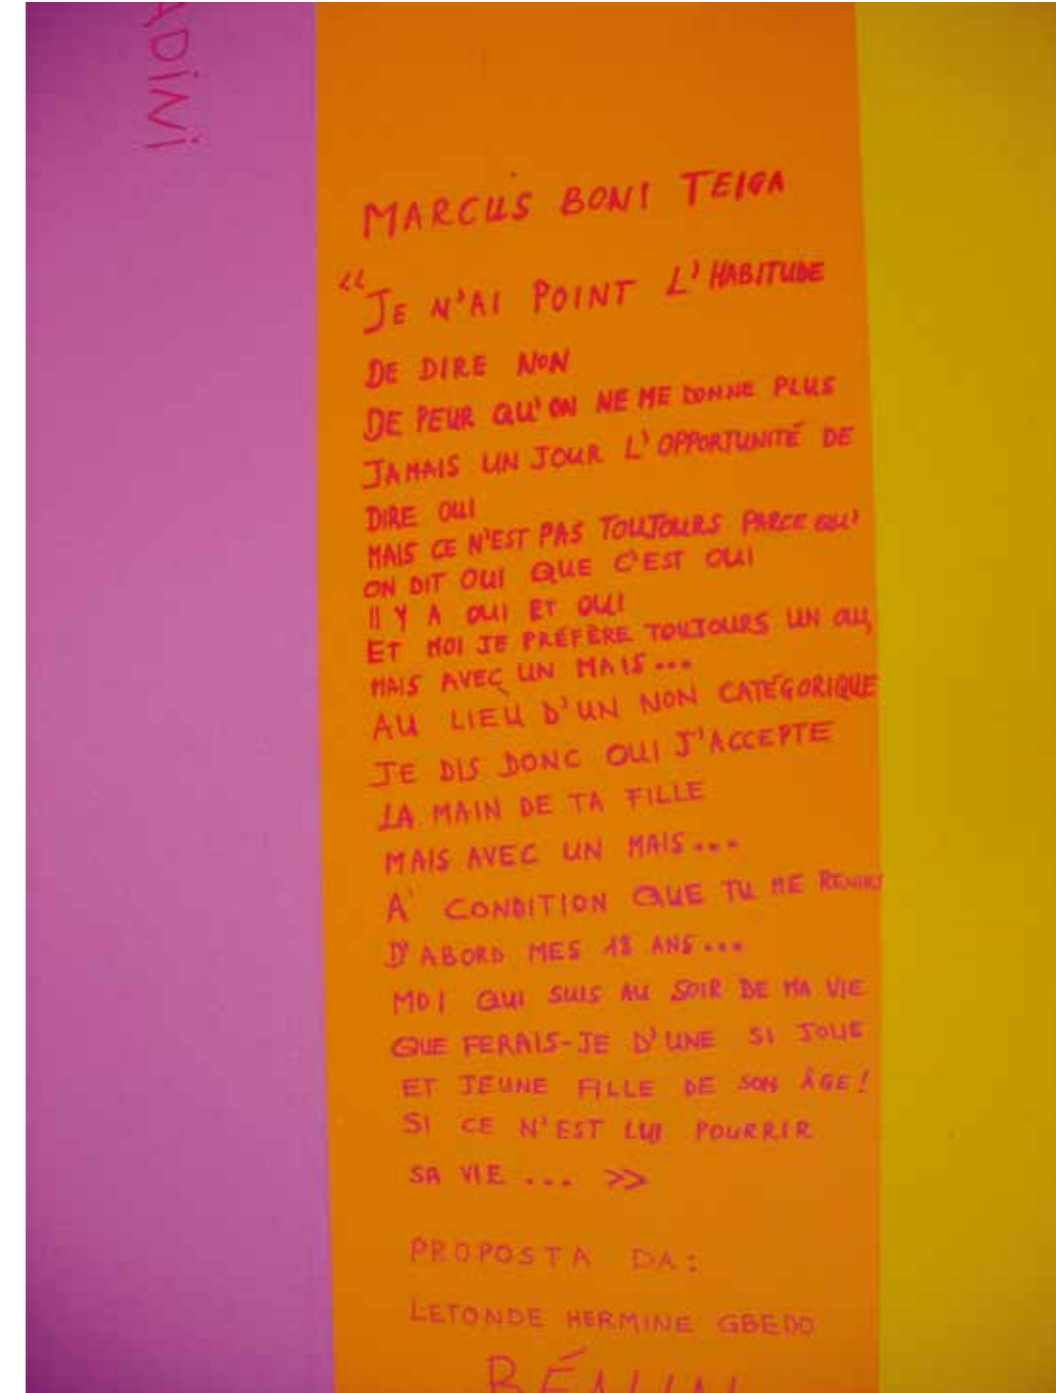 ADINI
MARCUS BONI TEIGA
“JE N'AI POINT L'HABITUDE
DE DIRE NON
DE PEUR QU'ON NE ME DONNE PLUS
JAMAIS UN JOUR L'OPPORTUNITÉ DE
DIRE OUI
MAIS CE N'EST PAS TOUJOURS PARCE QU'
ON DIT OUI QUE C'EST OUI
Il Y A OUI ET OUI
ET MOI JE PRÉFÈRE TOUJOURS UN OUI
MAIS AVEC UN MAIS...
AU LIEU D'UN NON CATÉGORIQUE
JE DIS DONC OUI J'ACCEPTE
LA MAIN DE TA FILLE
MAIS AVEC UN MAIS...
A' CONDITION QUE TU ME RENDES
D'ABORD MES 18 ANS...
MOI QUI SUIS AU SOIR DE MA VIE
QUE FERAIS-JE D'UNE SI JOLIE
ET JEUNE FILLE DE SON ÂGE!
SI CE N'EST LUI POURRIR
SA VIE ... >>
PROPOSTA DA:
LETONDE HERMINE GBEDO
BÉNIN